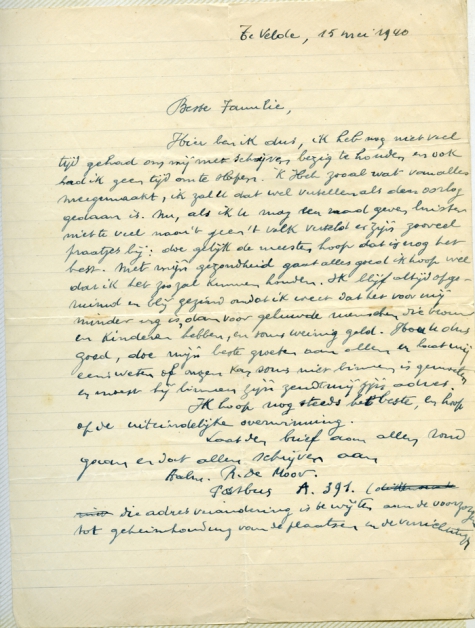 Te Velde, 15 mei 1940
Beste Familie,
Hier ben ik dus, ik heb nog niet veel
tijd gehad om mij met schrijven bezig te houden en ook
had ik geen tijd om te slapen. 'k Heb zooal wat van alles
meegemaakt, ik zal u dat wel vertellen als den oorlog
gedaan is. Nu, als ik u mag een raad geven luister
niet te veel naar 't geen 't volk verteld er zijn zooveel
praatjes bij: doe gelijk de meesten, hoop dat is nog het
best. Met mijn gezondheid gaat alles goed ik hoop wel
dat ik het zoo zal kunnen houden. Ik blijf altijd opge-
ruimd en blij gezind omdat ik weet dat het voor mij
minder erg is, dan voor gehuwde menschen die vrouw
en kinderen hebben, en soms weinig geld. Hou u dus
goed, doe mijn beste groeten aan allen en laat mij
eens weten of onzen Kar soms niet binnen is
en moest hij binnen zijn zendt mij zijn adres.
Ik hoop nog steeds het beste, en hoop
op de uiteindelijke overwinning.
Laat den brief aan allen rond
gaan en dat allen schrijven aan
R. De Moor.
Postbus A. 391. (
die adresverandering is te wijten aan de voorzorg
tot geheimhouding van de plaatsen en de